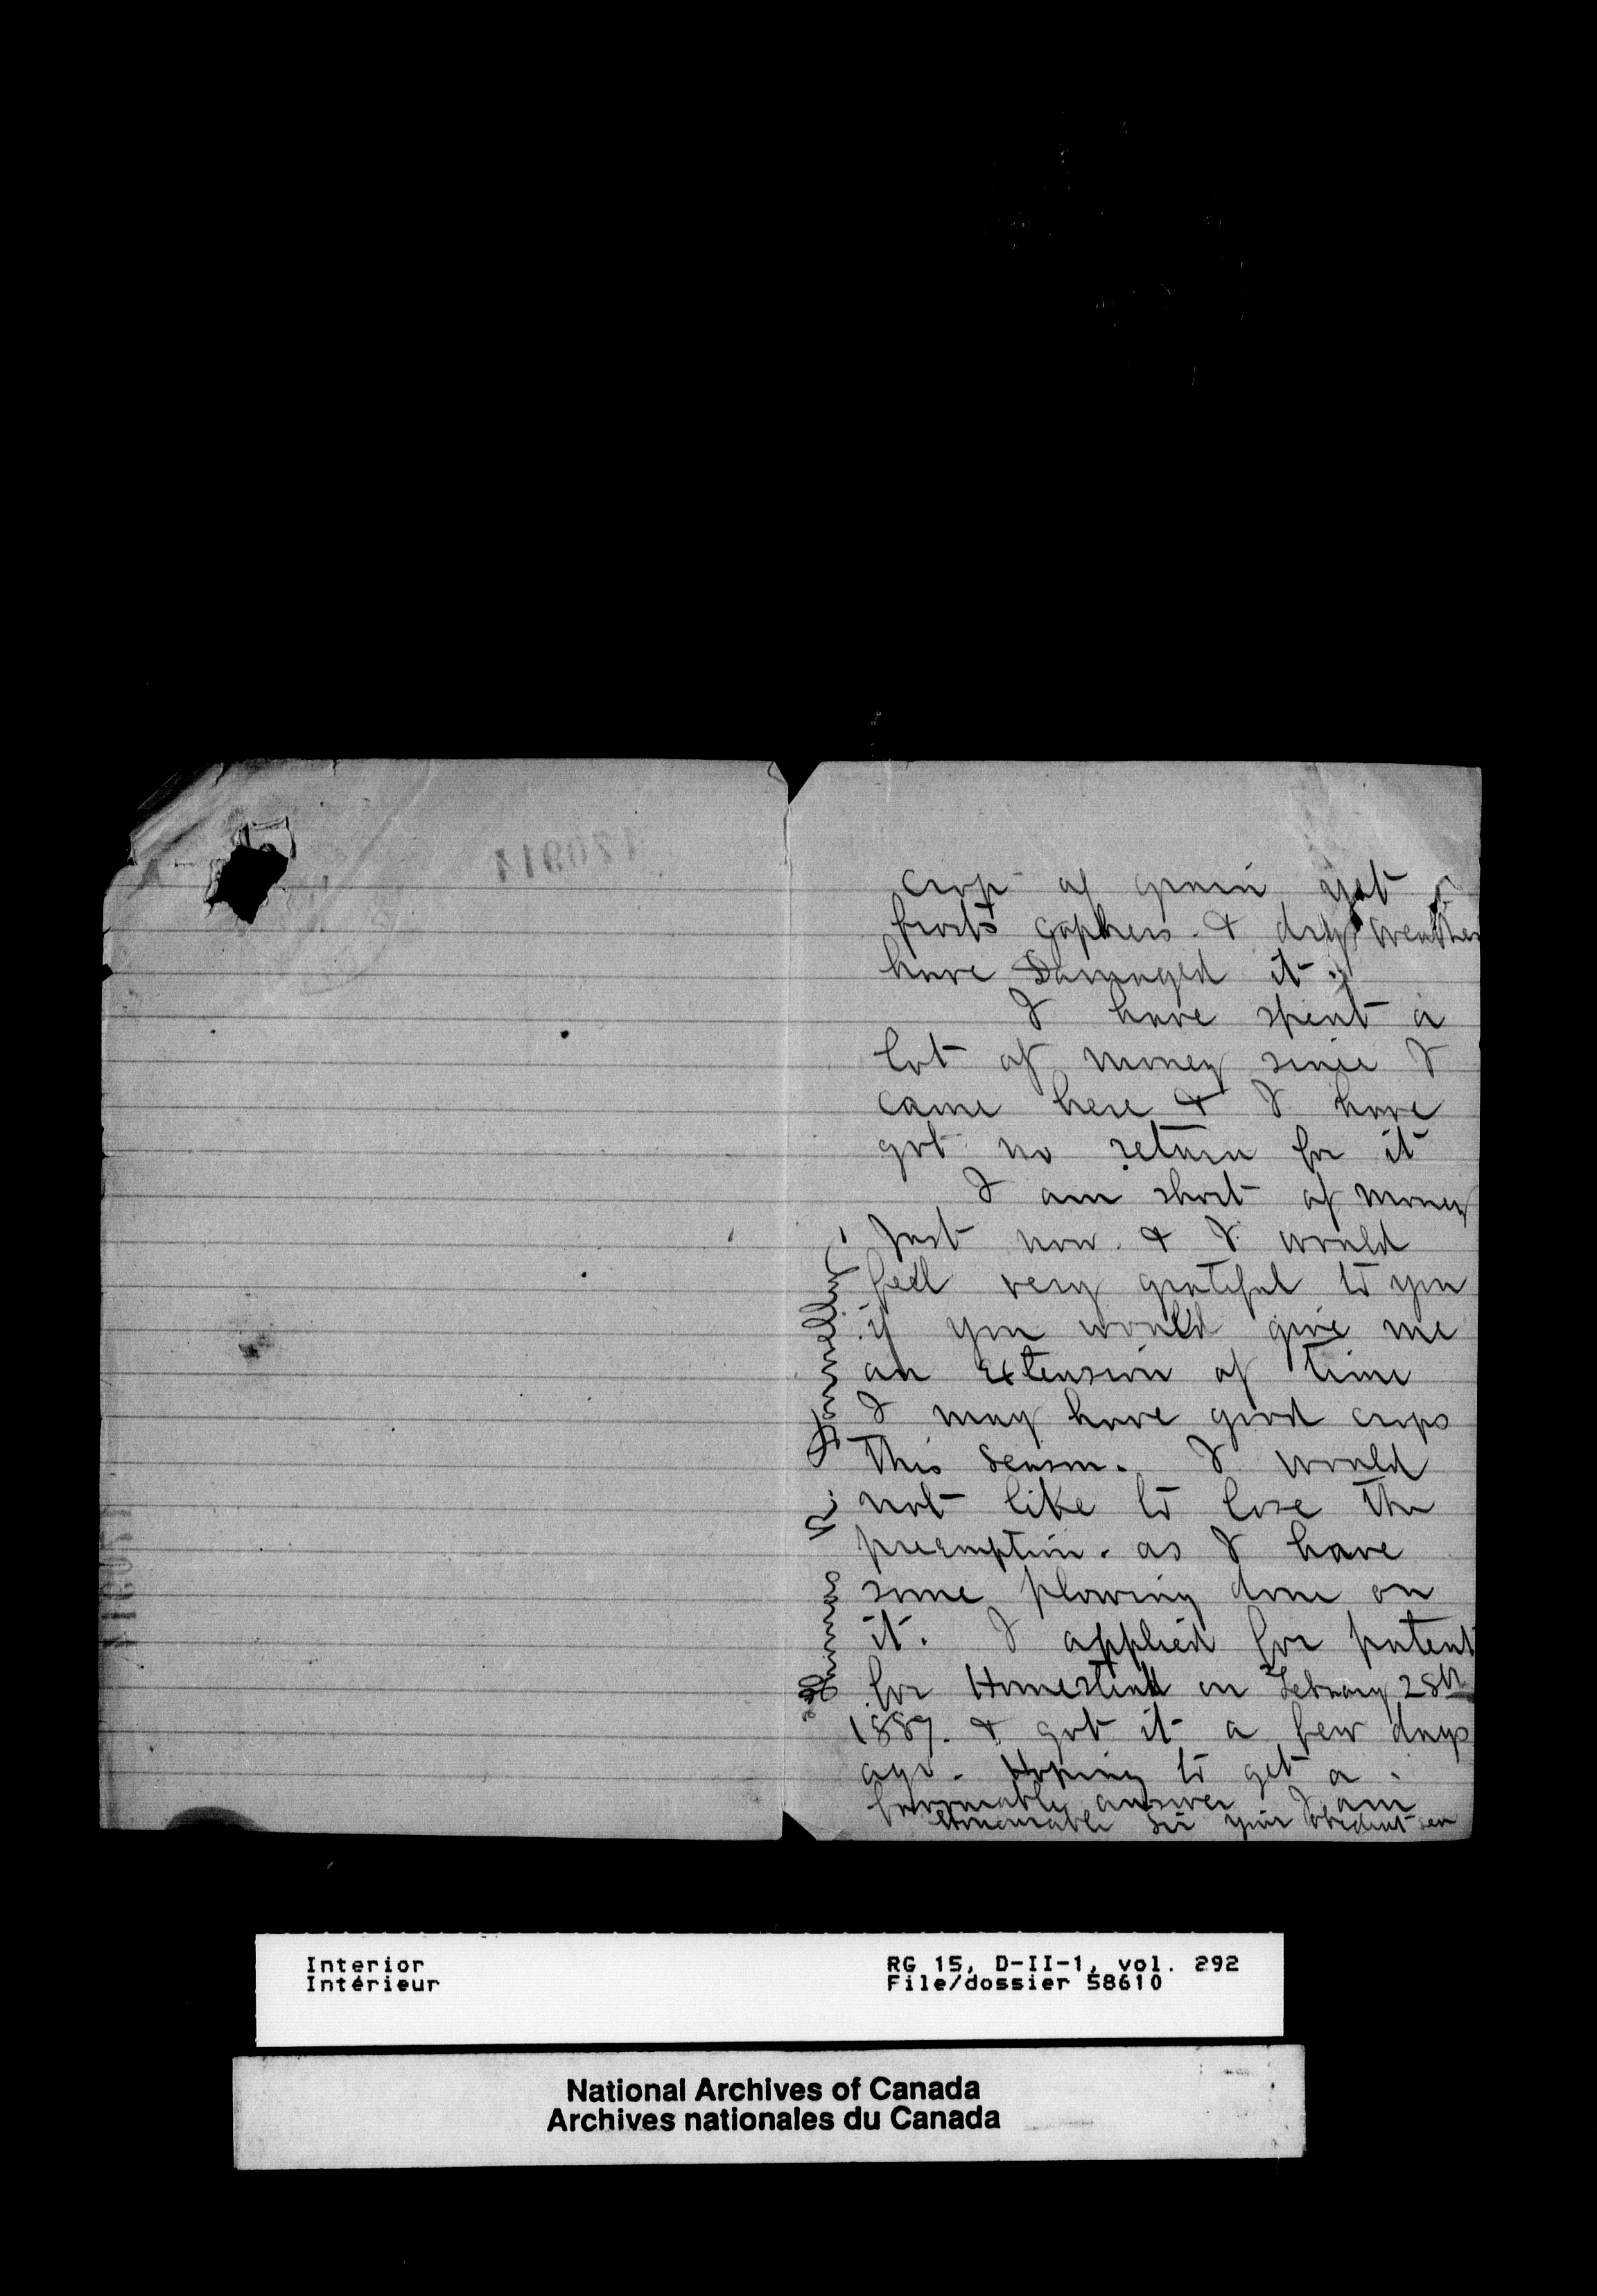 crop of grain yet
frosts gophers & dry weather
have Damaged it.
I have spent a
lot of money since I
came here & I have
got no return for it
I am short of money
Just now & I would
feel very grateful to you
if you would give me
an extension of time
I may have good crops
this season. I would
not like to lose the
preemption. as I have
some plowing done on
it. I applied for patent
for Homestead on February 28th
1889. & got it a few days
ago. Hoping to get a
favourable answer I am
Honourable Sir your obedient ser
Thomas D.
Interior
Intérieur
RG 15, D-II-1, vol. 292
File/dossier 58610
National Archives of Canada
Archives nationales du Canada